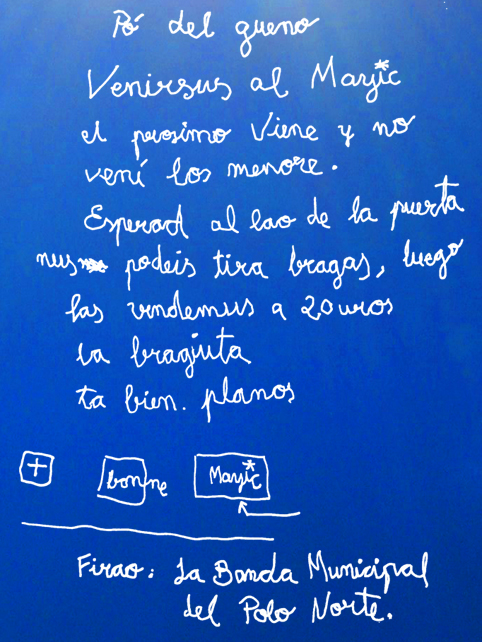 Pó del gueno
Venirsus al Mayic*
el prosimo Viene y no
vení los menore.
Esperad al lao de la puerta
nus podeis tira bragas, luego
las vendemus a 20 uros
la bragiuta
ta bien. planos
+ bonne Mayic*
Firao: La Banda Municipal
del Polo Norte.